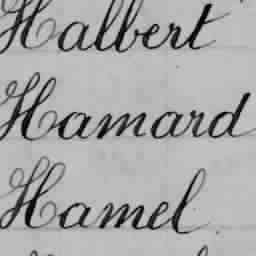 Halbert
Hamard
Hamel